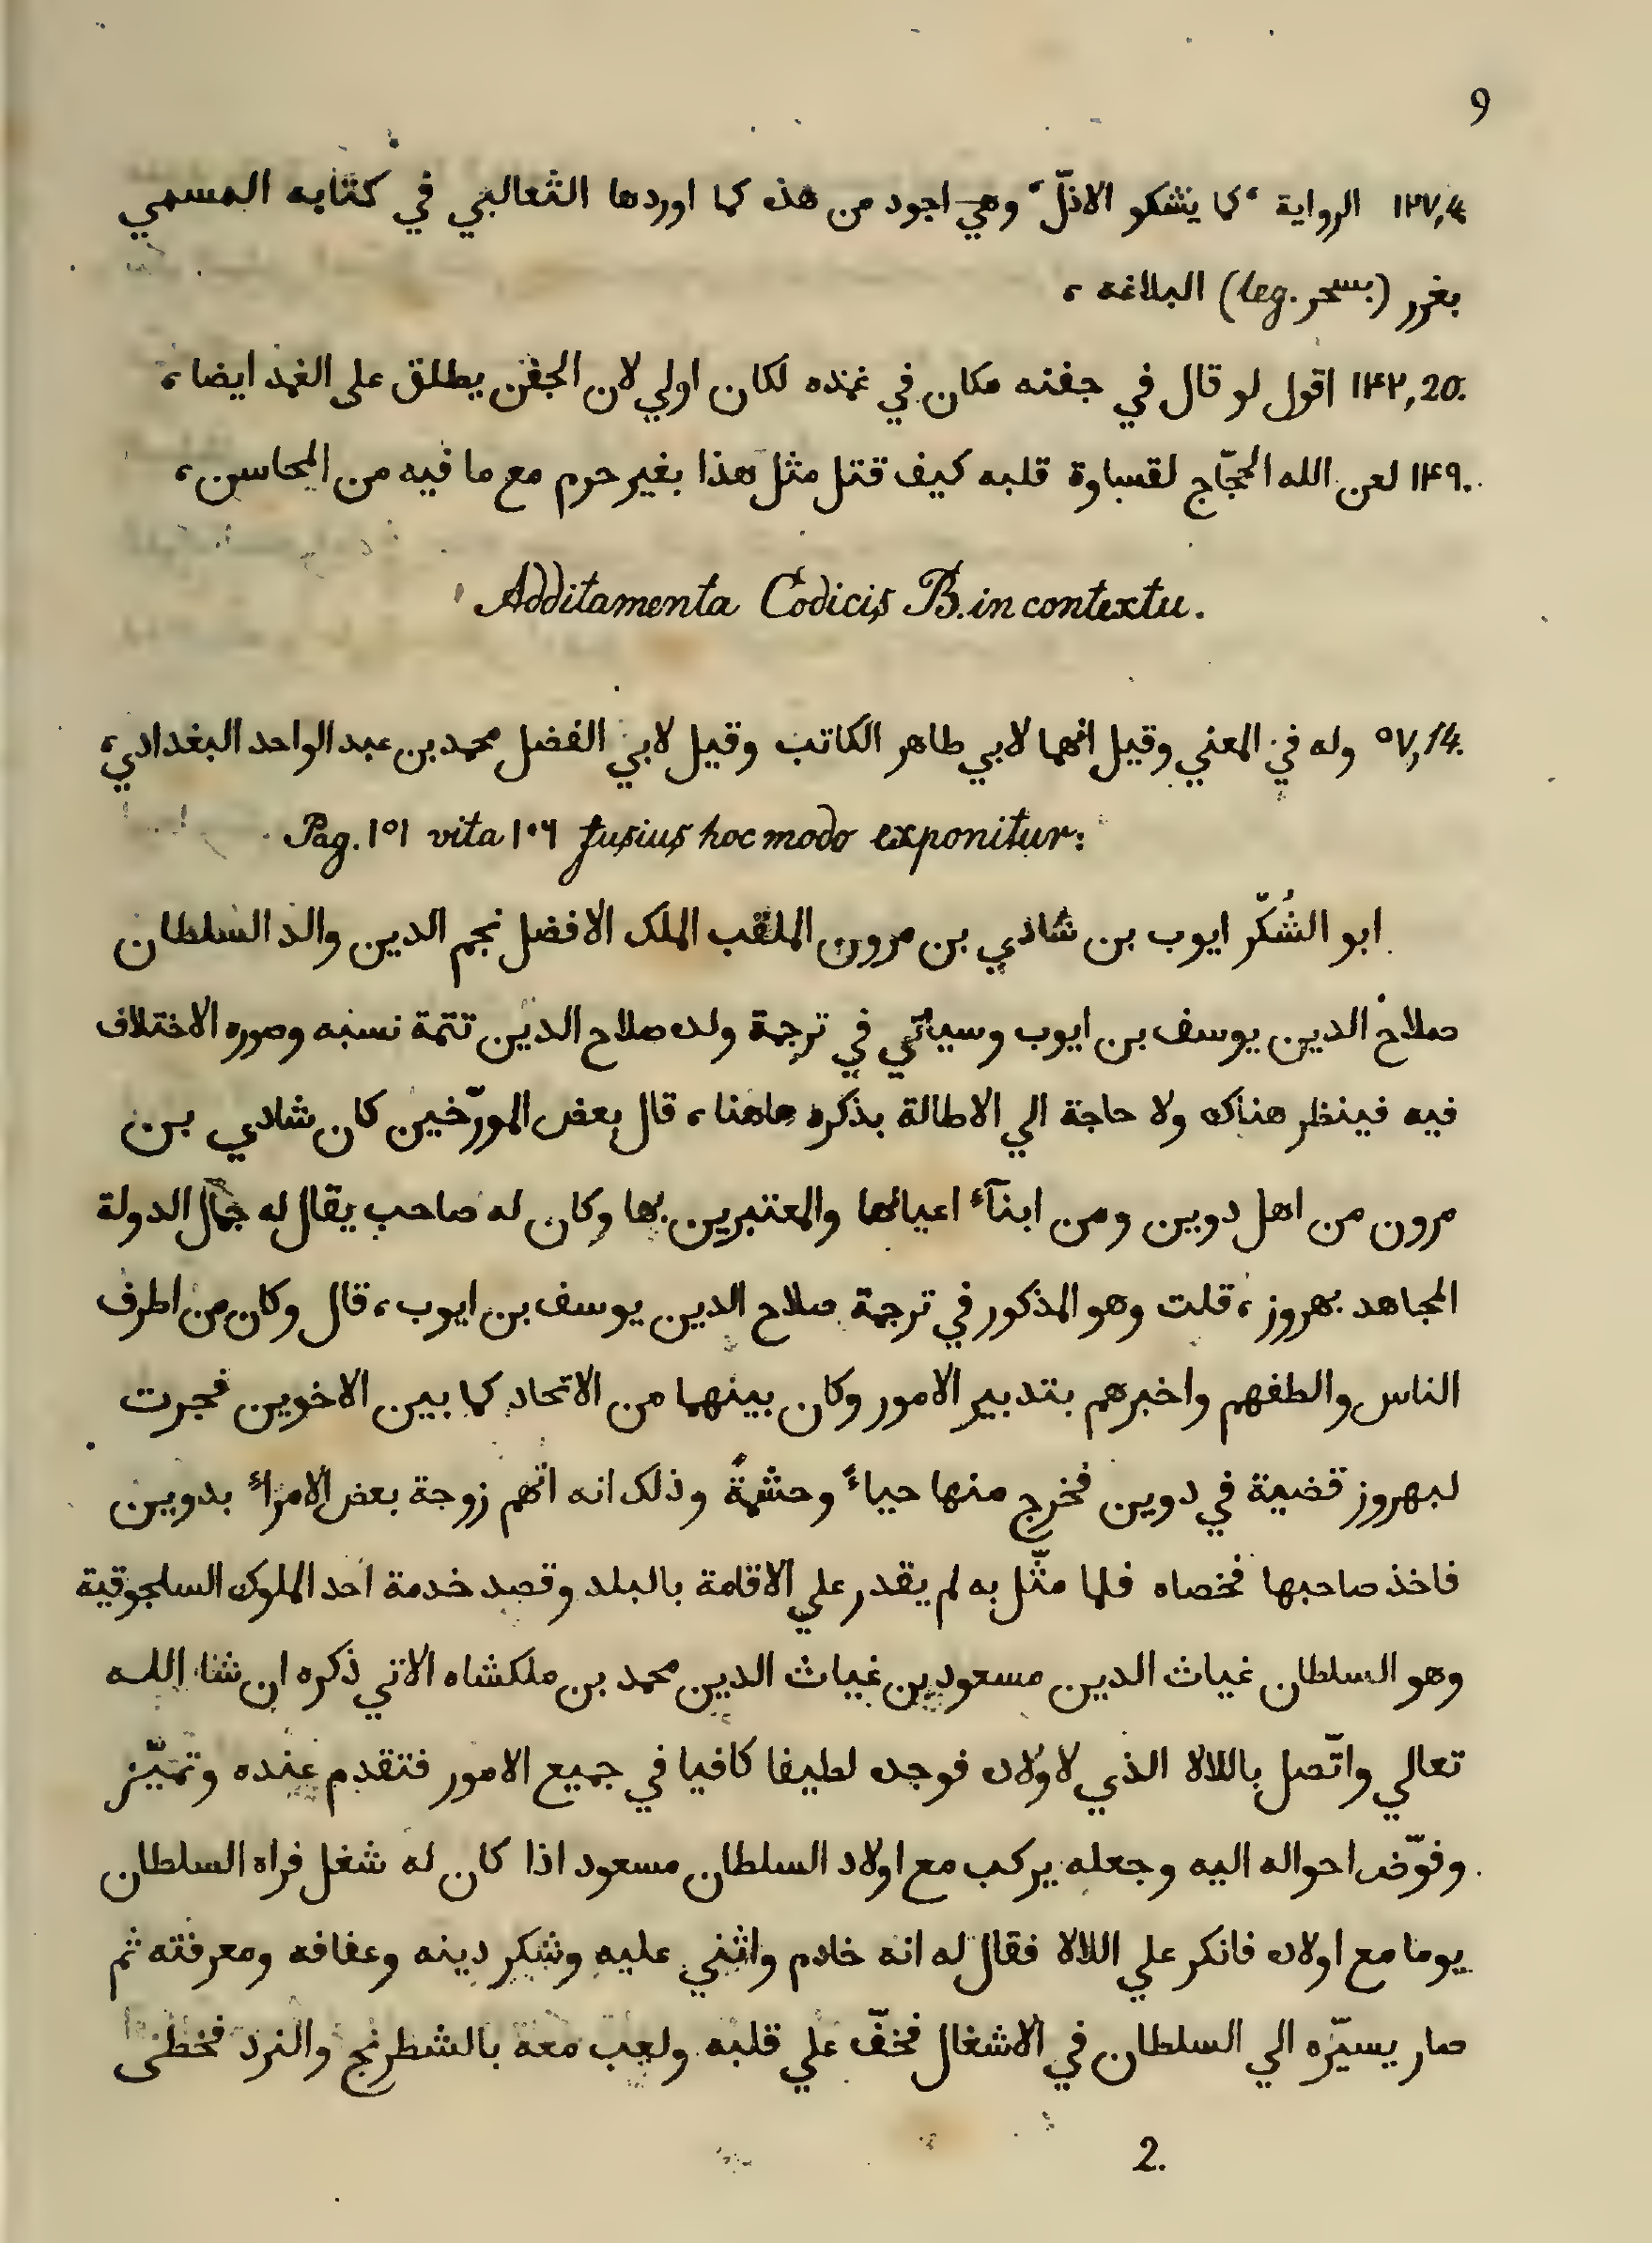 9
١٢٧,4 الرواية "كما يشكو الاذلّ" وهي اجود من هذه كما اوردها الثعالبي في كتابه المسمي
بغرر (leg. بسحر) البلاغه ،
١۴٢,20. اقول لو قال في جفنه مكان في غمده لكان اولي لان الجفن يطلق على الغمد ايضا ،
١۴٩. لعن الله الحجّاج لقساوة قلبه كيف قتل مثل هذا بغير حرم مع ما فيه من المحاسن ،
Additamenta Codicis B. in contextu.
٥٧,14. وله في المعني وقيل انهما لابي طاهر الكاتب وقيل لابي الفضل محمد بن عبد الواحد البغدادي ،
Pag. ١٥١ vita ١٠٦ fusius hoc modo exponitur:
ابو الشُكّر ايوب بن شاذي بن مرون الملقب الملك الافضل نجم الدين والد السلطان
صلاح الدين يوسف بن ايوب وسياتي في ترجمة ولده صلاح الدين تتمة نسبه وصوره الاختلاف
فيه فينظر هناك ولا حاجة الي الاطالة بذكره هاهنا ، قال بعض المورّخين كان شادي بن
مرون من اهل دوين ومن ابنآء اعيانها والمعتبرين بها وكان له صاحب يقال له جمال الدولة
المجاهد بهروز ، قلت وهو المذكور في ترجمة صلاح الدين يوسف بن ايوب ، قال وكان من اطرف
الناس والطفهم واخبرهم بتدبير الامور وكان بينهما من الاتحاد كما بين الاخوين فجرت
لبهروز قضية في دوين فخرج منها حياءً وحشمةً وذلك انه اتهم زوجة بعض الامراء بدوين
فاخذ صاحبها فخصاه فلما مثّل به لم يقدر علي الاقامة بالبلد وقصد خدمة احد الملوك السلجوقية
وهو السلطان غياث الدين مسعود بن غياث الدين محمد بن ملكشاه الاتي ذكره ان شا الله
تعالي واتّصل باللالا الذي لاولاده فوجده لطيفا كافيا في جميع الامور فتقدم عنده وتميّز
وفوّض احواله اليه وجعله يركب مع اولاد السلطان مسعود اذا كان له شغل فراه السلطان
يوما مع اولاده فانكر علي اللالا فقال له انه خادم واثني عليه وشكر دينه وعفافه ومعرفته ثم
صار يسيّره الي السلطان في الاشغال فخفّ علي قلبه ولعب معه بالشطرنج والنرد فخطى
2.